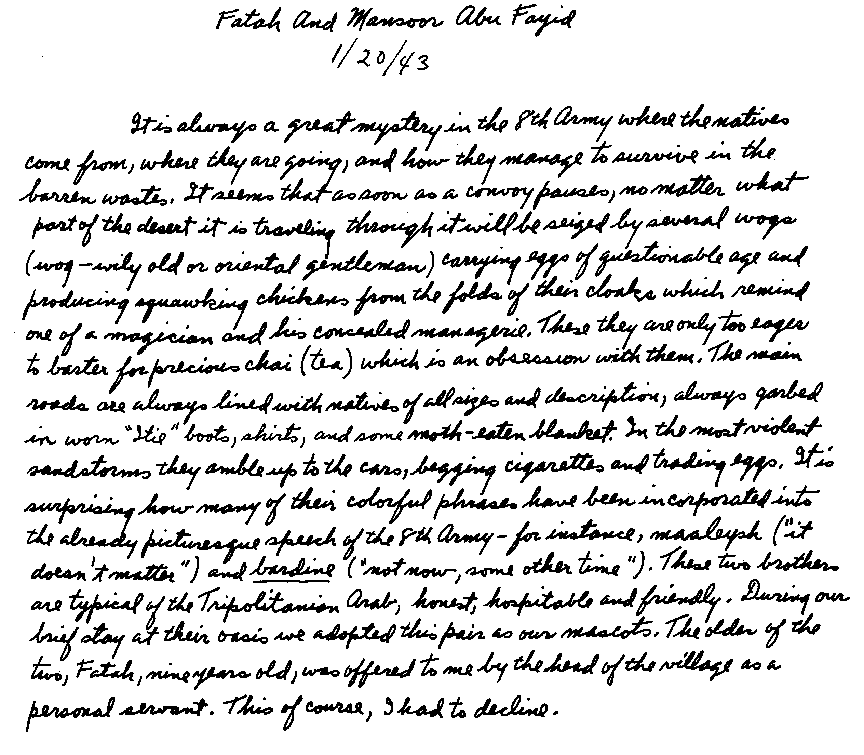 Fatah And Mansoor Abu Fayid
1/20/43
It is always a great mystery in the 8th Army where the natives
come from, where they are going, and how they manage to survive in the
barren wastes. It seems that as soon as a convoy pauses, no matter what
part of the desert it is traveling through it will be seized by several wogs
(wog-wily old or oriental gentleman) carrying eggs of questionable age and
producing squawking chickens from the folds of their cloaks which remind
one of a magician and his concealed managerie. These they are only too eager
to barter for precious chai (tea) which is an obsession with them. The main
roads are always lined with natives of all sizes and description, always garbed
in worn "Itie" boots, shirts, and some moth-eaten blanket. In the most violent
sandstorms they amble up to the cars, begging cigarettes and trading eggs. It is
surprising how many of their colorful phrases have been incorporated into
the already picturesque speech of the 8th Army - for instance, maaleysh ("it
doesn't matter") and bardine ("not now, some other time"). These two brothers
are typical of the Tripolitanian Arab, honest, hospitable and friendly. During our
brief stay at their oasis we adopted this pair as our mascots. The older of the
two, Fatah, nine years old, was offered to me by the head of the village as a
personal servant. This of course, I had to decline.